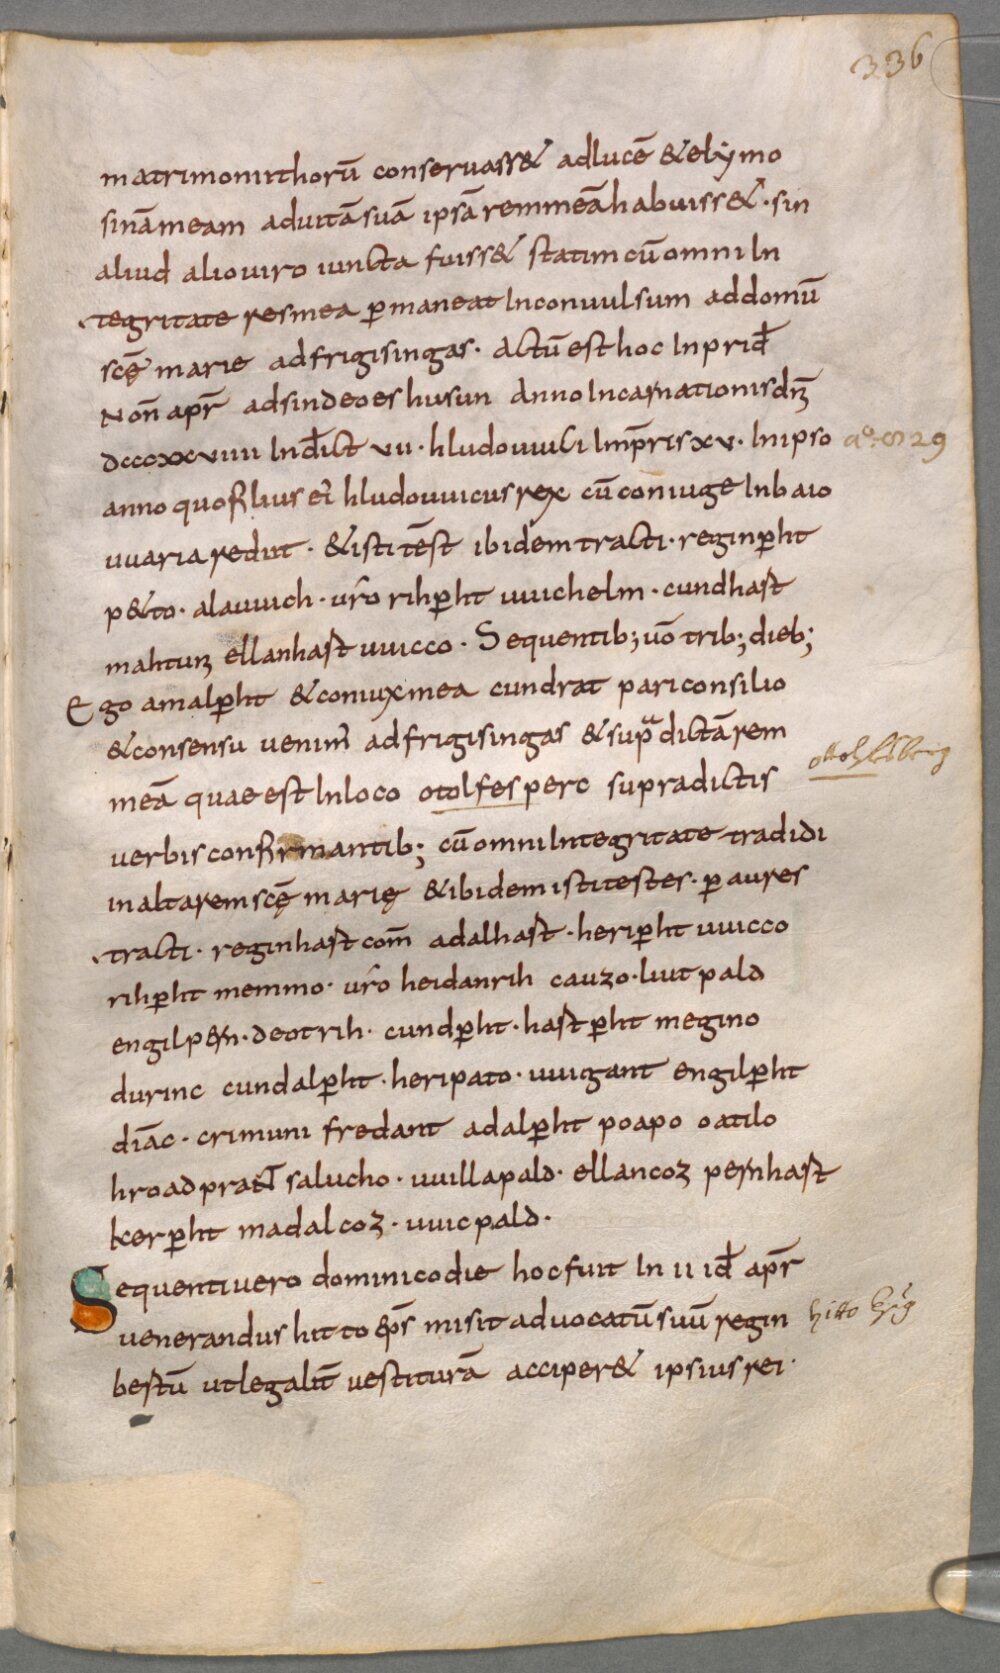 336
matrimonii thorū conservass& ad lucē & elymo
sinā meam ad vitā suā ipsā rem meā habuiss&. sin
aliud alio viro iuncta fuiss& statim cū omni in
tegritate res mea ꝑmaneat inconvulsum ad domū
scę̄ marie ad frigisingas. Actū est hoc in prid̄
Noñ apr̄ ad sindeoeshusun Anno incarnationis dn̄i
dcccxxviiii ind̄ict vii. hludouuici imp̄ris xv. in ipso
aº. 829
anno quo filius ei᷒ hludouuicus rex cū coniuge in baio
uuaria rediit. & isti tēst ibidem tracti. reginꝑht
p&to. alauuich. urō rihꝑht uuichelm. cundhast
mahtuni ellanhast uuicco. Sequentib; uō trib; dieb;
Ego amalꝑht & coniux mea cundrat pari consilio
& consensu venim᷒ ad frigisingas & supᵃdictā rem
meā quae est in loco otolfesperc supradictis
verbis confirmantib; cū omni integritate tradidi
in altarem scę̄ marię & ibidem isti testes. ꝑ aures
tracti. reginhast com̄ adalhast. heriꝑht uuicco
rihꝑht memmo. urō heidanrih cauzo. liutpald
engilpern. deotrih. cundꝑht. hastꝑht megino
durinc cundalꝑht. heripato. uuigant engilꝑht
diāc. crimuni fredant adalꝑht poapo oatilo
hroadprant salucho. uuillapald. ellancoz pernhast
kerꝑht madalcoz. uuicpald.
Sequenti vero dominico die hoc fuit in ii id̄ apr̄
venerandus hitto ep̄s misit advocatū suū regin
bestū ut legalit̄ vestiturā acciper& ipsius rei.